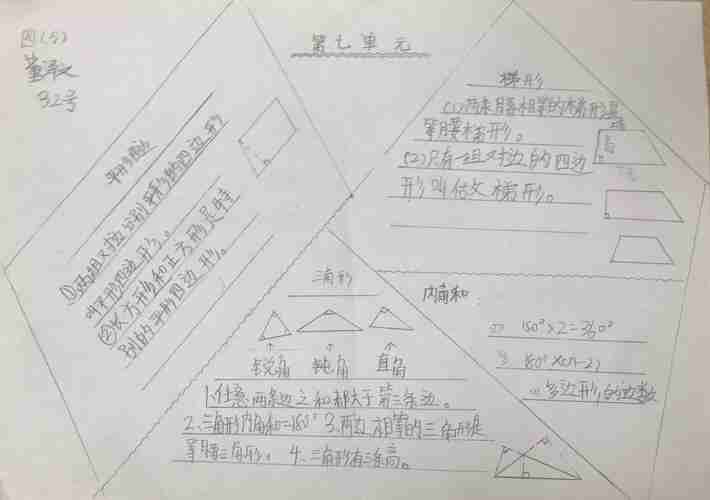 四(5)
董泽文
32号
第七单元
平行四边形
①两组对边分别平行的四边形
叫平行四边形。
②长方形和正方形是特
别的平行四边形。
梯形
(1)两条腰相等的梯形是
等腰梯形。
(2)只有一组对边的四边
形叫做梯形。
三角形
锐角 钝角 直角
1.任意两条边之和都大于第三条边。
2、三角形内角和=180° 3、两边相等的三角形是
等腰三角形。 4、三角形有三条高。
内角和:
180°×2=360°
180°×(n-2)
多边形的边数